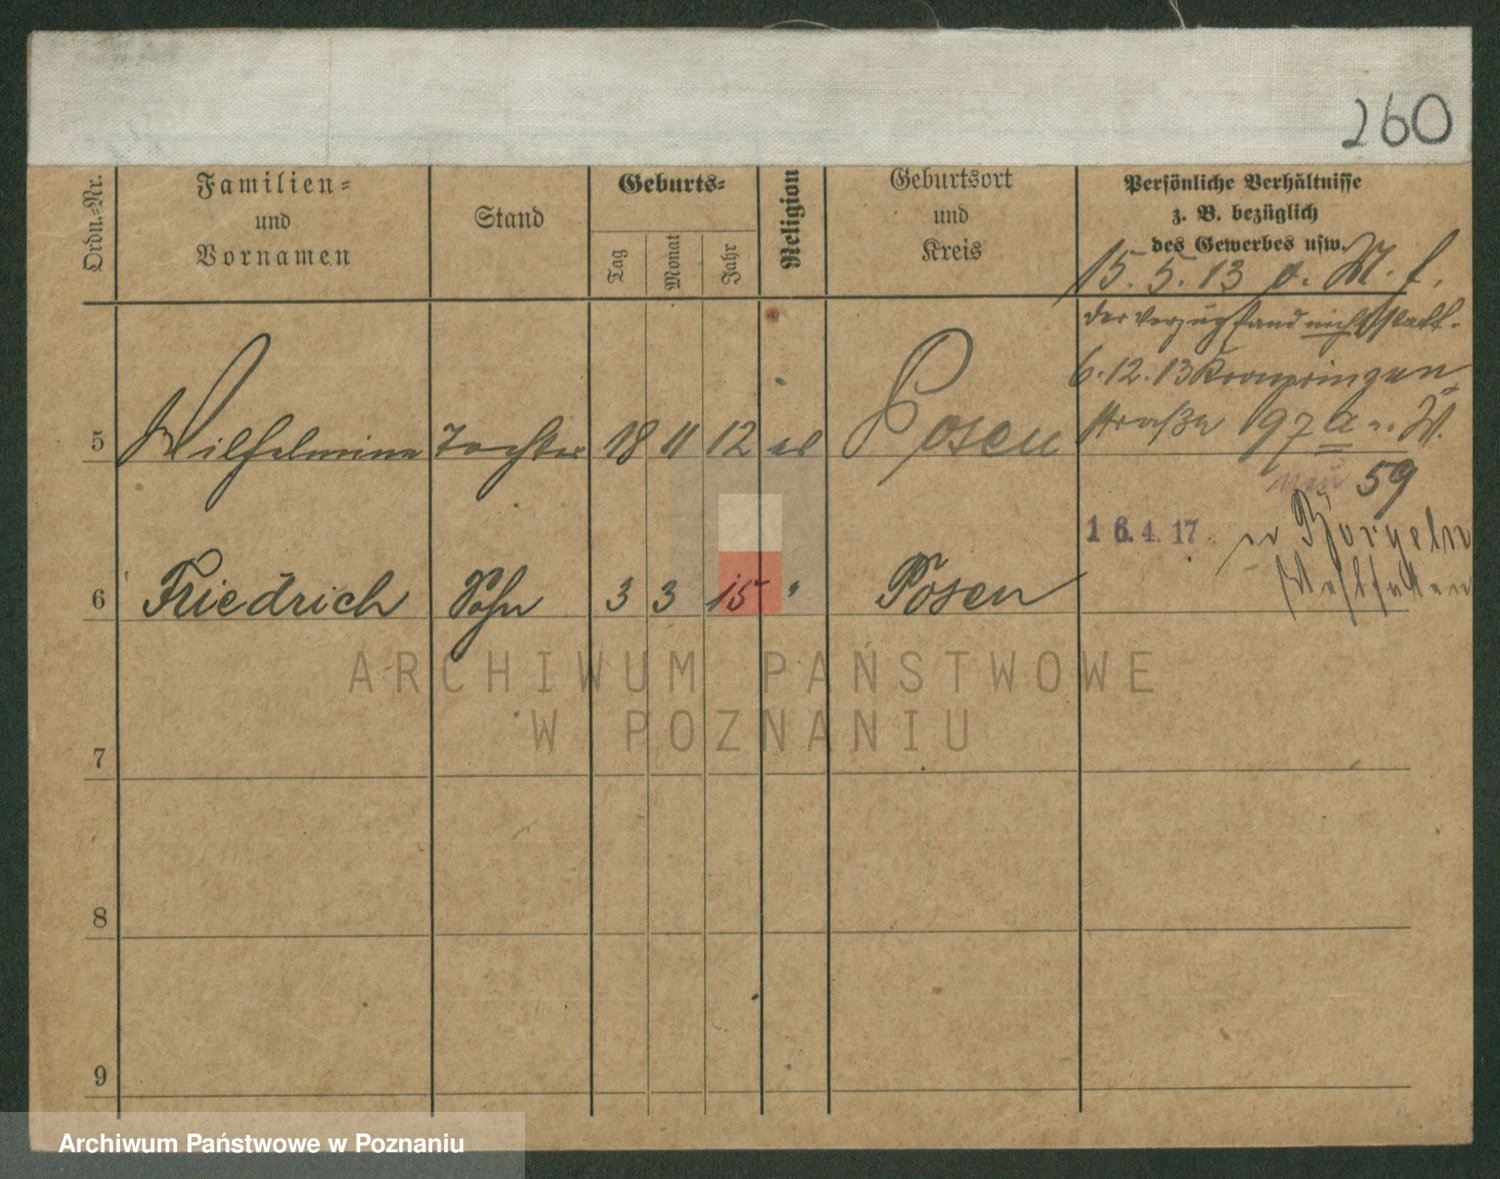 260
Ordn.-Nr.
Familien-
und
Vornamen
Stand
Geburts-
Tag
Monat
Jahr
Religion
Geburtsort
und
Kreis
Persönliche Verhältnisse
z. B. bezüglich
des Gewerbes usw.
15.5.13
der Verzug fand nicht statt.
6.12.13 Kronprinzen
straße 97a
neu 59
5 Wilhelmine Tochter 18 11 12 ev Posen
16.4.17.
Westfalen
6 Friedrich Sohn 3 3 15 " Posen
ARCHIWUM PAŃSTWOWE
W POZNANIU
7
8
9
Archiwum Państwowe w Poznaniu